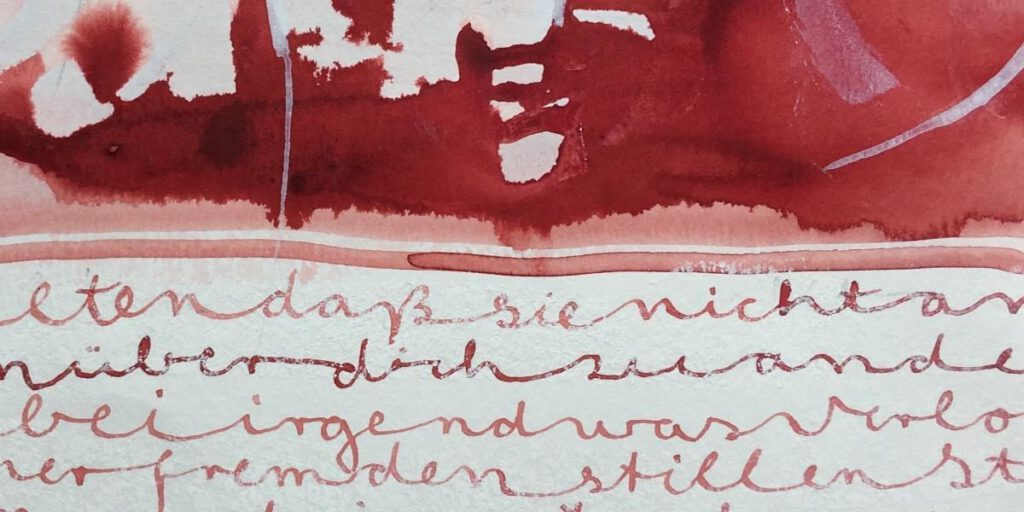 lten daß sie nicht an
n über dich zu ande
bei irgendwas Verlo
ner fremden stillen St